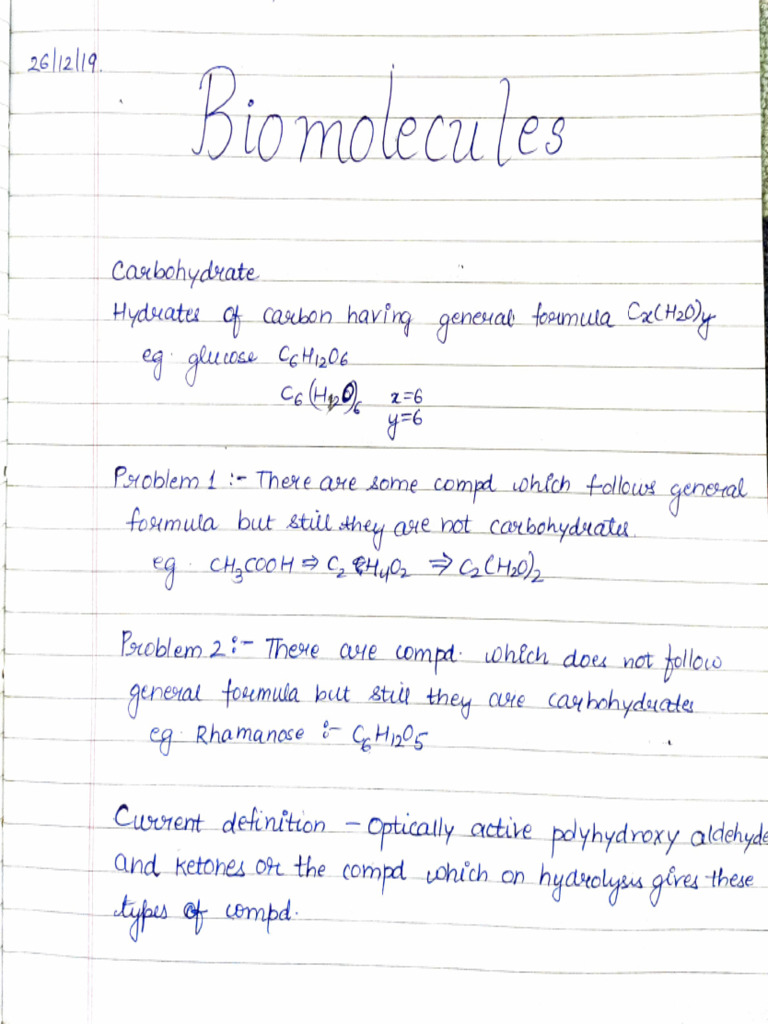 26/12/19.
Biomolecules
Carbohydrate
Hydrates of carbon having general formula Cx(H2O)y
eg. glucose C6H12O6
C6(H2O)6 x=6
y=6
Problem 1 :- There are some compd which follows general
formula but still they are not carbohydrates.
eg. CH3COOH ⇒ C2H4O2 ⇒ C2(H2O)2
Problem 2 :- There are compd. which does not follow
general formula but still they are carbohydrates
eg. Rhamanose :- C6H12O5
Current definition - Optically active polyhydroxy aldehyde
and ketones or the compd which on hydrolysis gives these
types of compd.